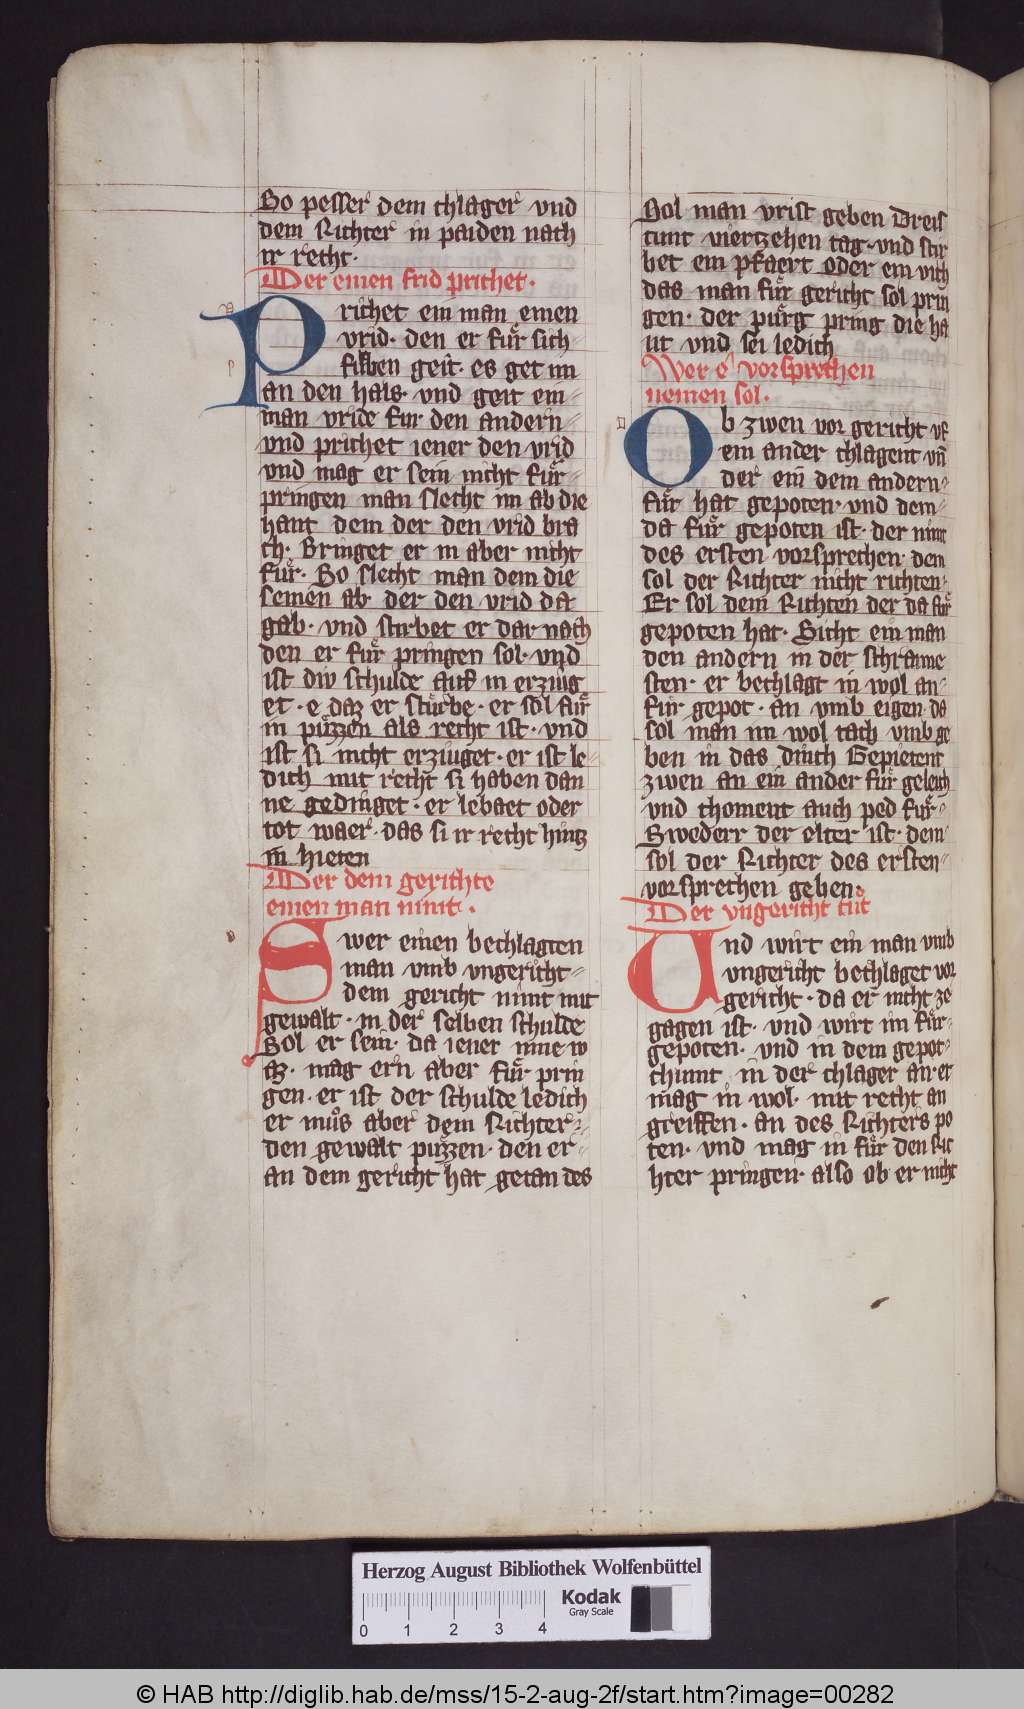 So pesser dem chlager vnd
dem Richter in paiden nach
ir recht·
Der einen frid prichet·
Prichet ein man einen
vrid· den er fuͤr sich
selben geit· es get im
an den hals· vnd geit ein
man vride fur den andern
vnd prichet iener den vrid
vnd mag er sein nicht fuͤr
pringen man slecht im ab die
hant dem der den vrid bra
ch· Bringet er in aber nicht
fuͤr· So slecht man dem die
seinen ab der den vrid da
gab· vnd stirbet er dar nach
den er fuͤr pringen sol· vnd
ist diw schulde auf in erziug
et· e daz er stuͤrbe· er sol fuͤr
in puͤzzen als recht ist· vnd
ist si nicht erziuget· er ist le
dich mit recht si haben dan
ne gedinget· er lebaet oder
tot waer· das si ir recht hintz
im hieten
Der dem gerichte
einen man nimt·
Swer einen bechlagten
man vmb vngericht
dem gericht nimt mit
gewalt· in der selben schulde
Sol er sein· da iener inne w
az· mag ern aber fuͤr prin
gen· er ist der schulde ledich
er muͦs aber dem Richter
den gewalt puͤzzen· den er
an dem gericht hat getan des
Sol man vrist geben Dreis
tunt viertzehen tag· vnd stir
bet ein pfaert oder ein vich
das man fuͤr gericht sol prin
gen· der puͤrg pring die ha
ut vnd sei ledich
Wer e vorsprechen
nemen sol·
Ob zwen vor gericht vf
ein ander chlagent vn̄
der ein dem andern
fuͤr hat gepoten· vnd dem
da fuͤr gepoten ist· der nimt
des ersten vorsprechen· dem
sol der Richter nicht richten·
Er sol dem Richten der da fuͤr
gepoten hat· Sicht ein man
den andern in der schranne
sten· er bechlagt in wol an
fuͤr gepot· an vmb eigen da
sol man im wol tach vmb ge
ben in das dinch Gepietent
zwen an ein ander fuͤr geleich
vnd choment auch ped fuͤr
Swederr der elter ist· dem
sol der Richter des ersten
vorsprechen geben·
Der vngericht tuͦt
Und wirt ein man vmb
vngericht bechlaget vor
gericht· da er nicht ze
gagen ist· vnd wirt im fuͤr
gepoten· vnd in dem gepot
chumt in der chlager an· er
mag in wol· mit recht an
greiffen· an des Richters po
ten· vnd mag in fuͤr den Ric
hter pringen· also ob er nicht
Herzog August Bibliothek Wolfenbüttel
0 1 2 3 4
Kodak
Gray Scale
© HAB http://diglib.hab.de/mss/15-2-aug-2f/start.htm?image=00282